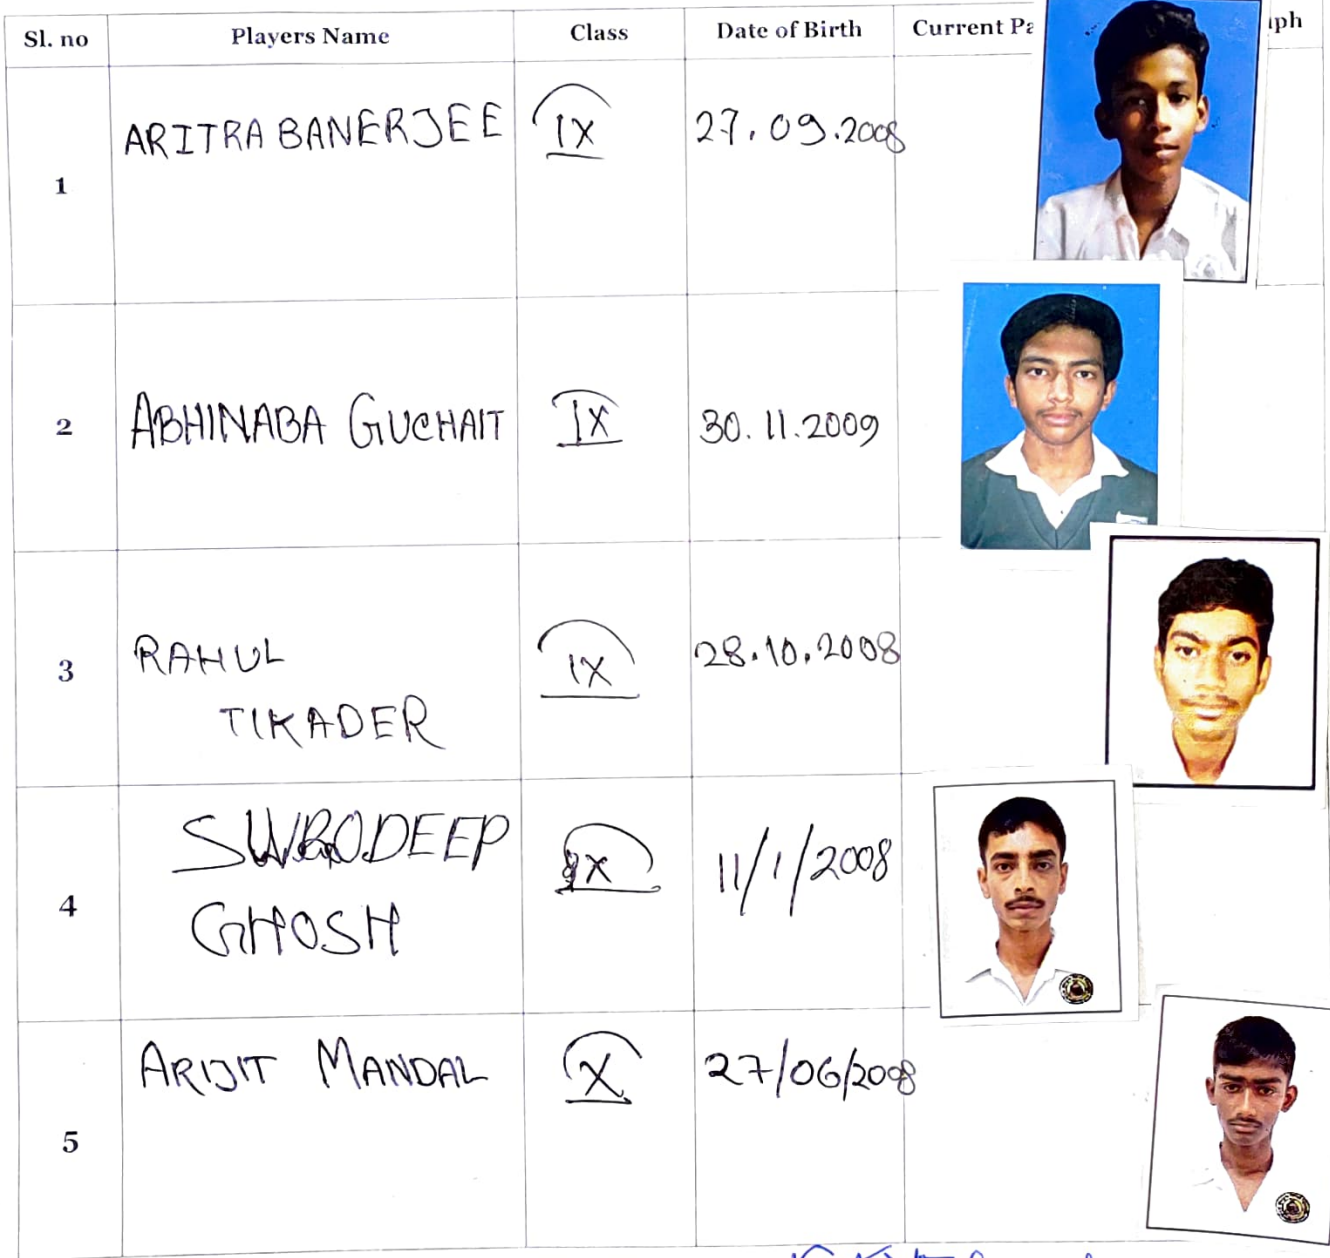 Sl. no Players Name Class Date of Birth Current Pa ph
1 ARITRA BANERJEE IX 27.09.2008
2 ABHINABA GUCHAIT IX 30.11.2009
3 RAHUL IX 28.10.2008
TIKADER
4 IX 11/1/2008
GHOSH
5 ARIJIT MANDAL X 27/06/2008